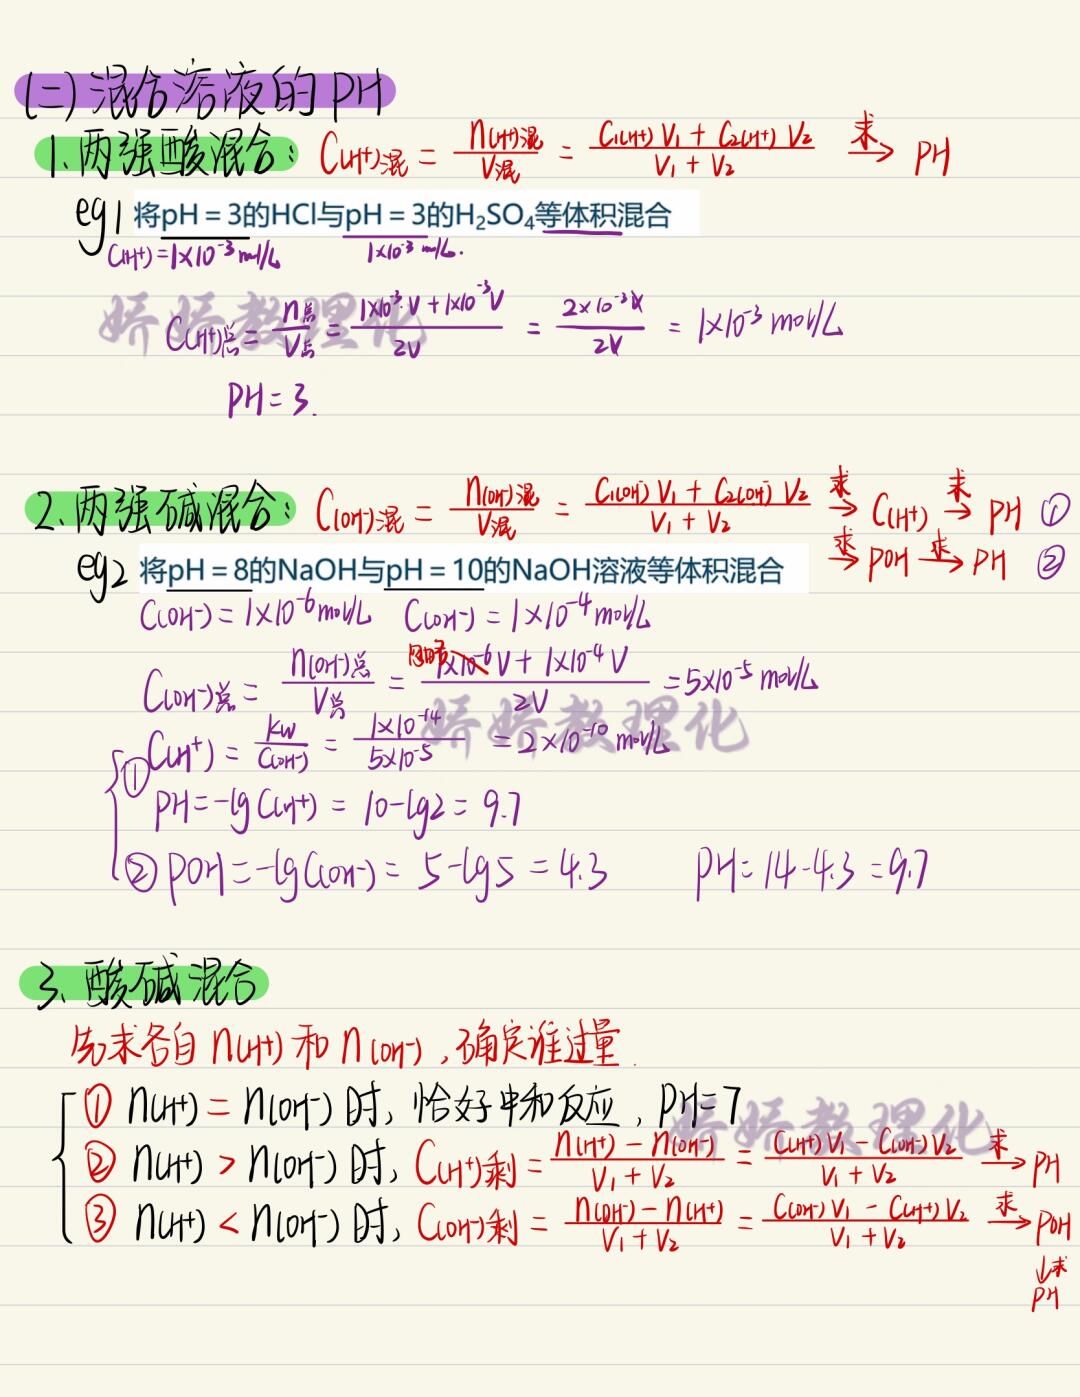 (二)混合溶液的PH
1.两强酸混合: C(H+)混 = n(H+)混/V混 = C1(H+)V1 + C2(H+)V2/V1 + V2 求→ PH
eg1 将pH = 3的HCl与pH = 3的H₂SO₄等体积混合
C(H+)=1×10⁻³mol/L 1×10⁻³mol/L.
C(H+)总 = n总/V总 = 1×10⁻³V + 1×10⁻³V/2V = 2×10⁻³V/2V = 1×10⁻³mol/L
PH = 3.
2.两强碱混合: C(OH-)混 = n(OH-)混/V混 = C1(OH-)V1 + C2(OH-)V2/V1 + V2 求→ C(H+) 求→ PH ①
求→ POH 求→ PH ②
eg2 将pH = 8的NaOH与pH = 10的NaOH溶液等体积混合
C(OH-) = 1×10⁻⁶mol/L C(OH-) = 1×10⁻⁴mol/L
忽略
C(OH-)总 = n(OH-)总/V总 = 1×10⁻⁶V + 1×10⁻⁴V/2V = 5×10⁻⁵mol/L
① C(H+) = Kw/C(OH-) = 1×10⁻¹⁴/5×10⁻⁵ = 2×10⁻¹⁰mol/L
PH = -lgC(H+) = 10-lg2 = 9.7
② POH = -lgC(OH-) = 5-lg5 = 4.3 PH = 14-4.3 = 9.7
3、酸碱混合
先求各自n(H+)和n(OH-),确定谁过量.
① n(H+) = n(OH-)时,恰好中和反应,PH=7
② n(H+) > n(OH-)时,C(H+)剩 = n(H+) - n(OH-)/V1 + V2 = C(H+)V1 - C(OH-)V2/V1 + V2 求→ PH
③ n(H+) < n(OH-)时,C(OH-)剩 = n(OH-) - n(H+)/V1 + V2 = C(OH-)V1 - C(H+)V2/V1 + V2 求→ POH
↓求
PH
娇娇教理化
娇娇教理化
娇娇教理化